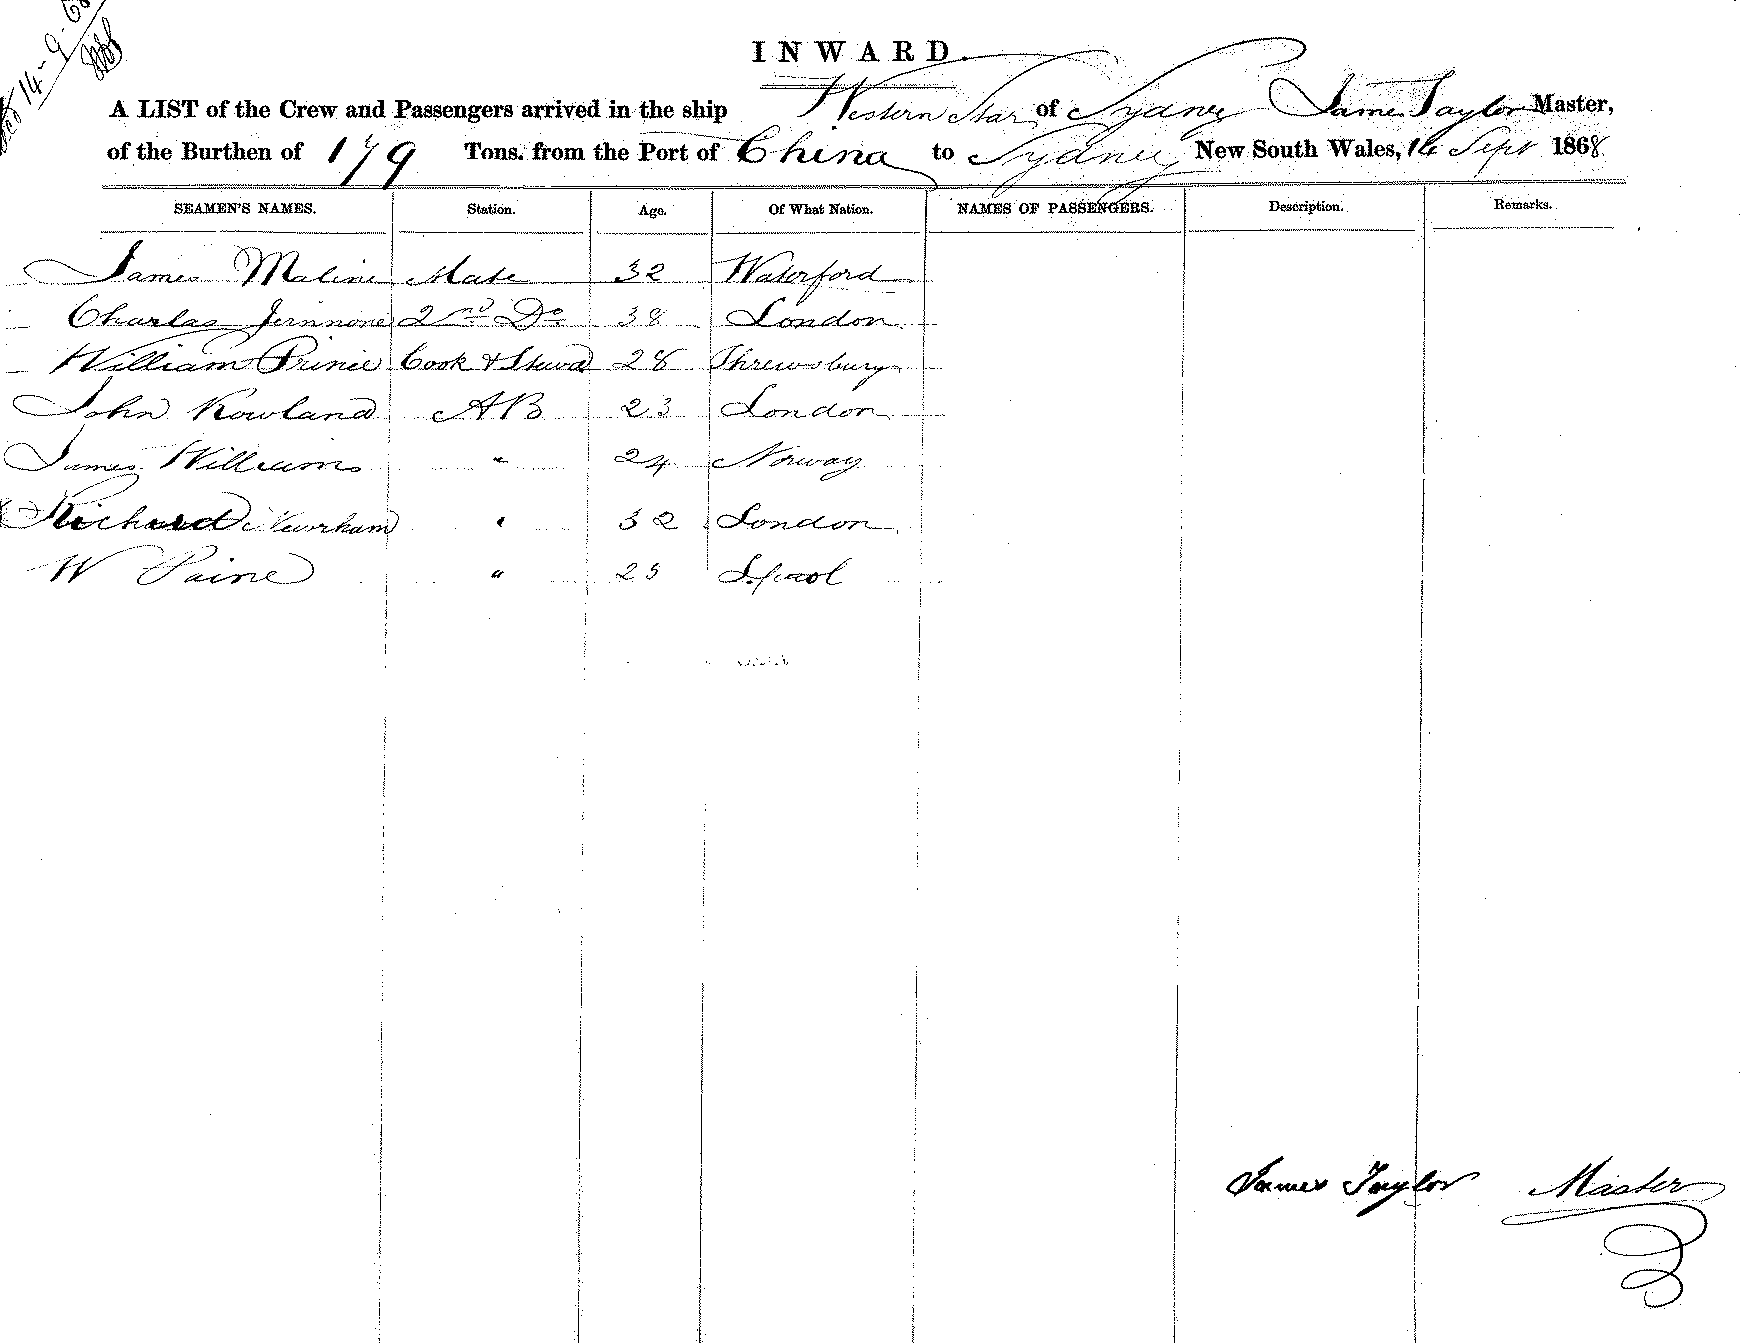 14-9-68
INWARD.
A LIST of the Crew and Passengers arrived in the ship Western Star of Sydney James Taylor Master,
of the Burthen of 179 Tons. from the Port of China to Sydney New South Wales, Sept 1868
SEAMEN'S NAMES. Station. Age. Of What Nation. NAMES OF PASSENGERS. Description. Remarks.
James Maline Mate 32 Waterford
Charles 2nd Do 38 London
William Prince Cook & Stewd 28 Shrewsbury
John Rowland AB 23 London
James Williams " 24 Norway
Richard " 32 London
W Paine " 25 L.pool
James Taylor Master